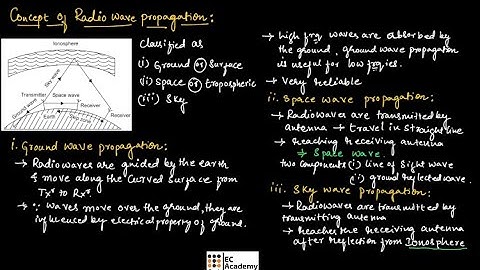 Concept of Radio wave propagation:
Ionosphere
Sky wave
Transmitter
Space wave
Ground wave
Receiver
Receiver
Earth
Classified as
(i) Ground or Surface
(ii) Space or Tropospheric
(iii) Sky
i. Ground wave propagation:
→ Radiowaves are guided by the earth
& move along the curved surface from
Txr to Rxr.
→ ∵ waves move over the ground, they are
influenced by electrical property of ground.
→ high frq waves are absorbed by
the ground, ground wave propagation
is useful for low frq.ies.
→ Very Reliable
ii. Space wave propagation:
→ Radiowaves are transmitted by
antenna → travel in straight line
→ Reaching Receiving antenna
→ Space wave.
two Components (i) line of Sight wave
(ii) ground reflected wave.
iii. Sky wave propagation:
→ Radiowaves are transmitted by
transmitting antenna
→ Reaches the Receiving antenna
after reflection from Ionosphere
EC
Academy